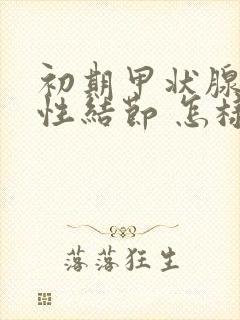 初期甲状腺
性结节 怎样
落落狂生